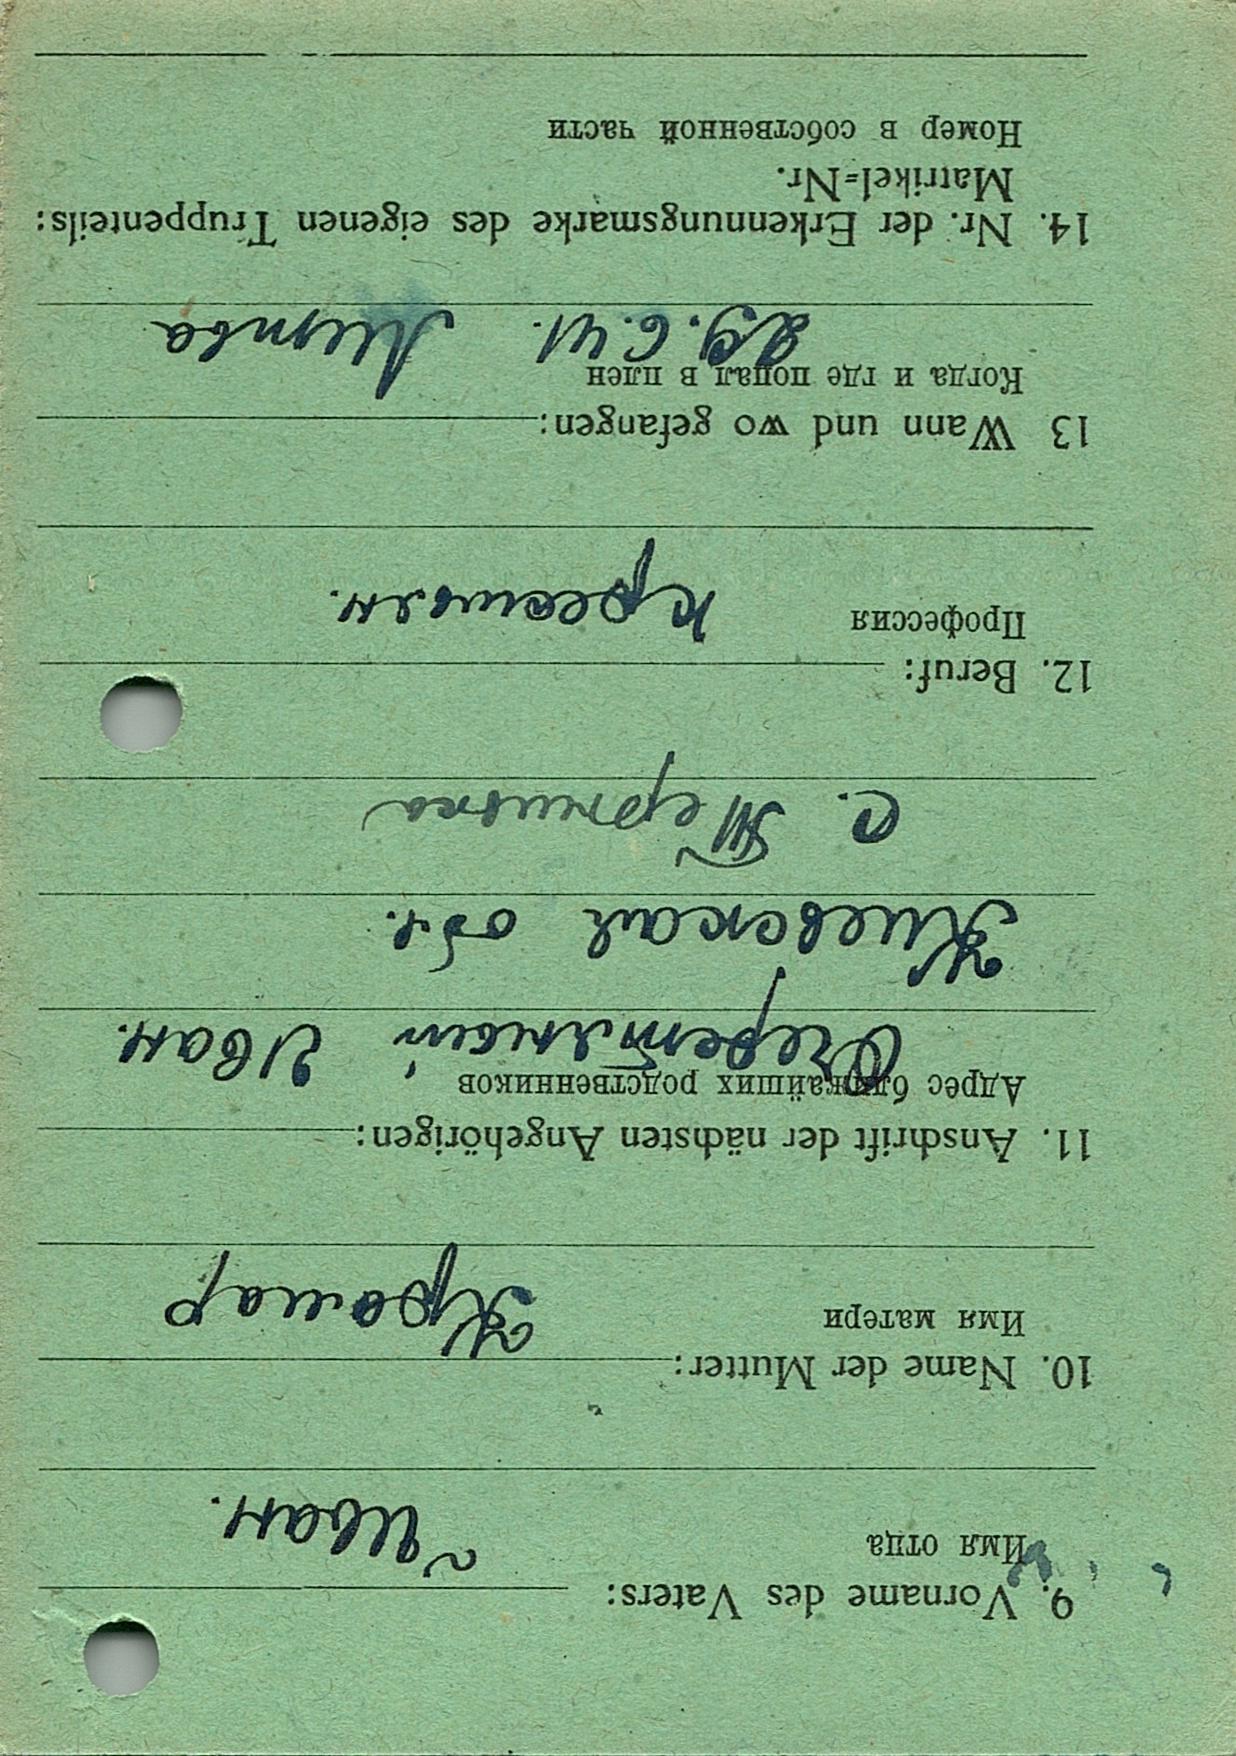 9. Vorname des Vaters:
Имя отца
Иван.
10. Name der Mutter:
Имя матери
Крамар
11. Anschrift der nächsten Angehörigen:
Адрес ближайших родственников
Очеретяный Иван.
Киевская обл.
с. Терновка
12. Beruf:
Профессия
крестьян.
13 Wann und wo gefangen:
Когда и где попал в плен
29.6.41. Литва
14. Nr. der Erkennungsmarke des eigenen Truppenteils:
Matrikel-Nr.
Номер в собственной части